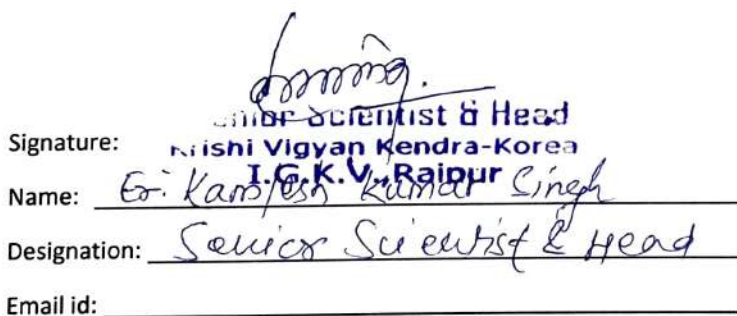 Senior Scientist & Head
Signature:
Krishi Vigyan Kendra-Korea
I.G.K.V., Raipur
Name: Er. Kamlesh Kumar Singh
Designation: Senior Scientist & Head
Email id: